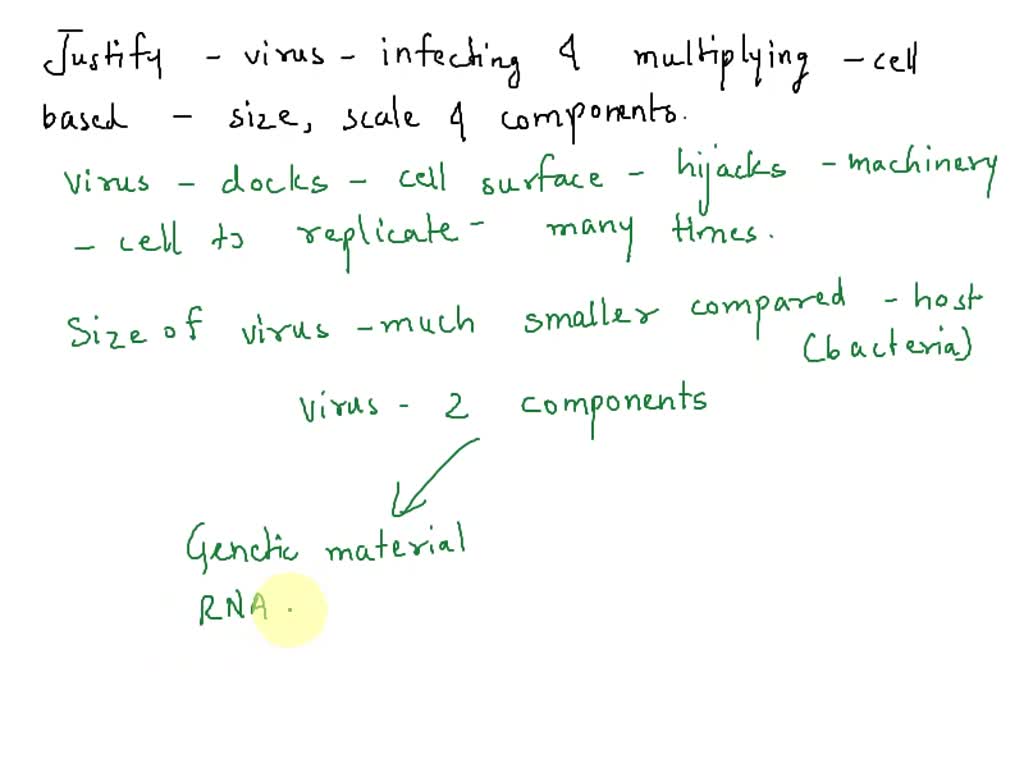 Justify - virus - infecting & multiplying - cell
based - size, scale & components.
Virus - docks - cell surface - hijacks - machinery
- cell to replicate - many times.
Size of virus - much smaller compared - host
(bacteria)
Virus - 2 components
Genetic material
RNA.